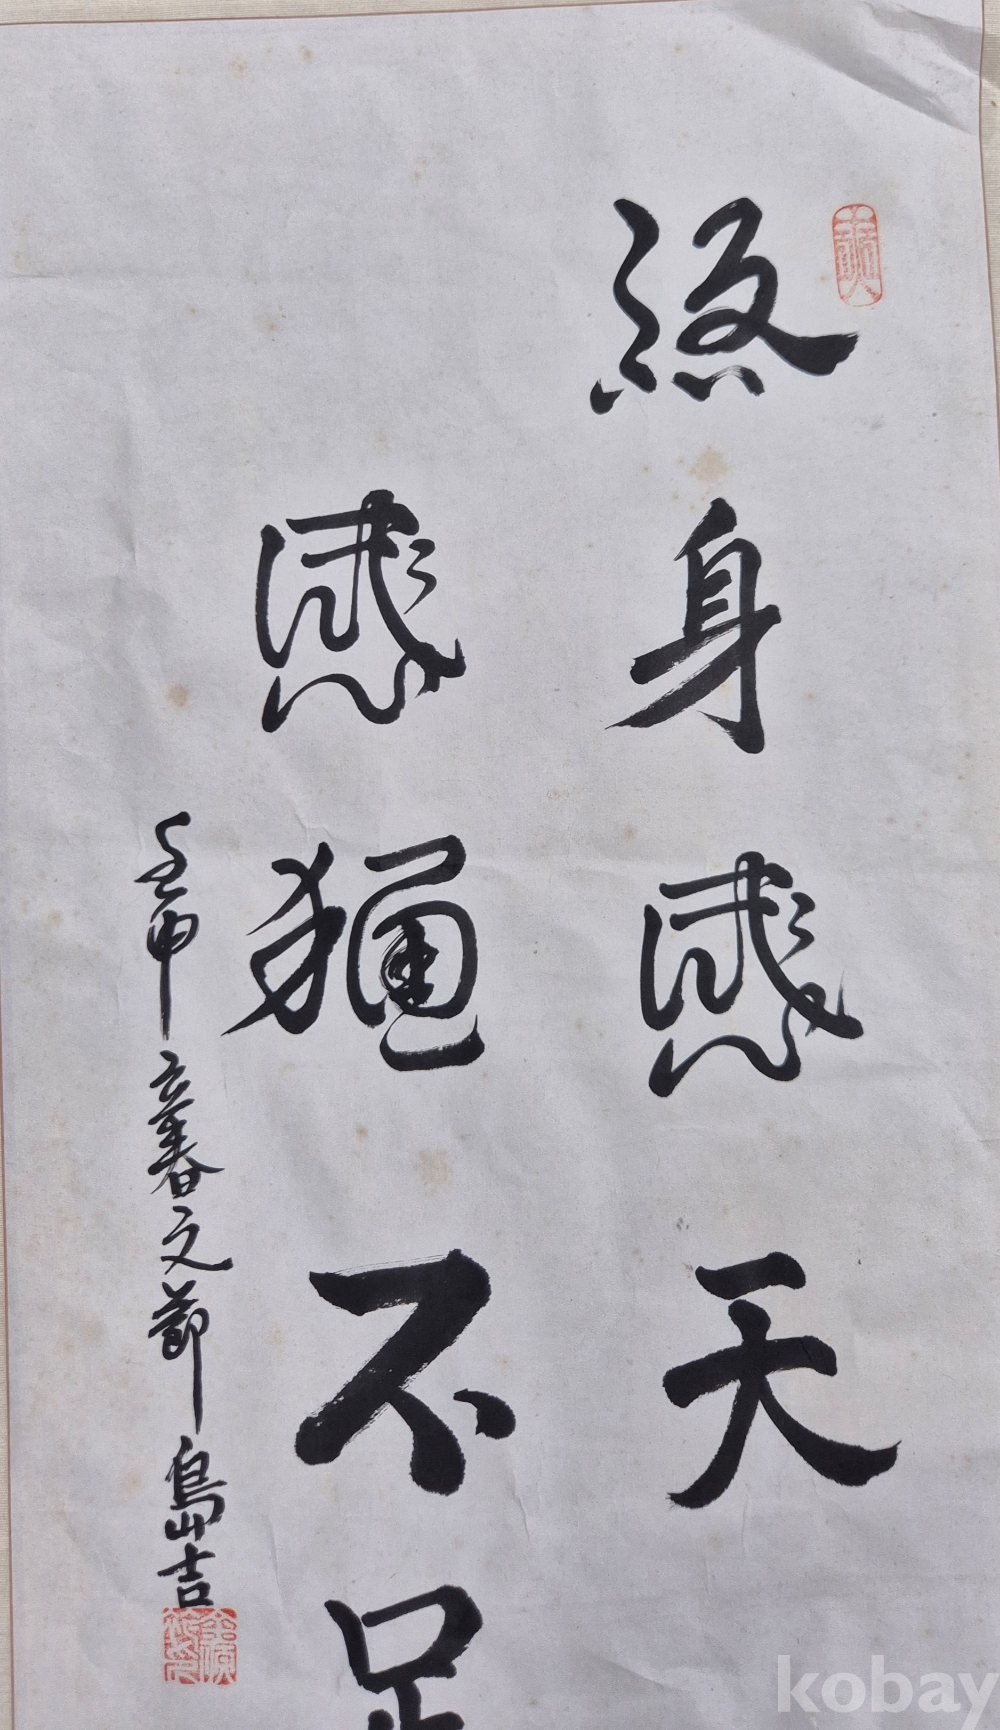 終身感天
感猶不足
壬申立春之節 島吉
kobay